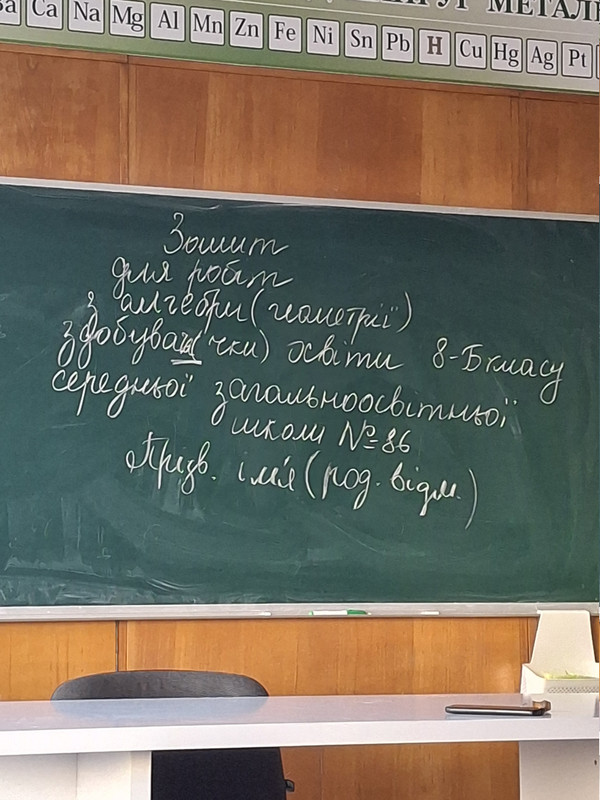 МЕТАЛ
Ba Ca Na Mg Al Mn Zn Fe Ni Sn Pb H Cu Hg Ag Pt
Зошит
для робіт
з алгебри (геометрії)
здобувача(чки) освіти 8-Б класу
середньої загальноосвітньої
школи №86
Прізв. ім'я (род. відм.)